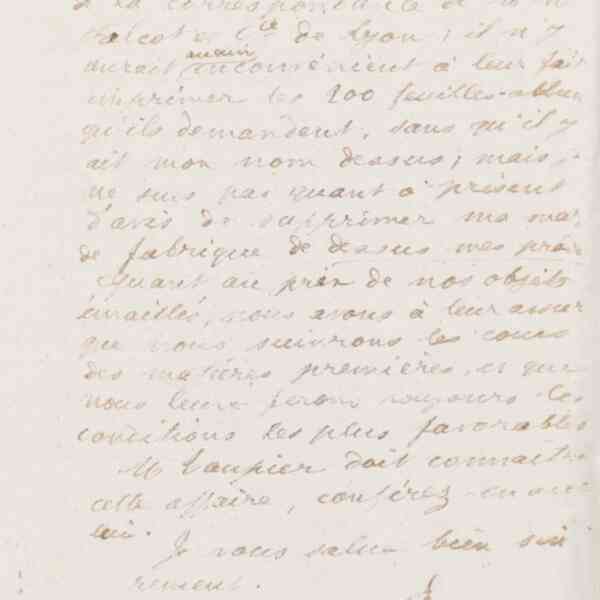 à la correspondance de
et Cie de Lyon, il n'y
aurait aucun inconvénient à leur faire
imprimer les 200 feuilles-album
qu'ils demandent, sans qu'il y
ait mon nom dessus; mais je
ne suis pas quant à présent
d'avis de supprimer ma mar
de fabrique de dessus mes pro
Quant au prix de nos objets
émaillés, nous avons à leur assur
que nous suivrons les cours
des matières premières, et que
nous leur ferons toujours les
conditions les plus favorables
M doit connaitre
cette affaire, conférez-en avec
lui.
Je vous salue bien sin
rement.